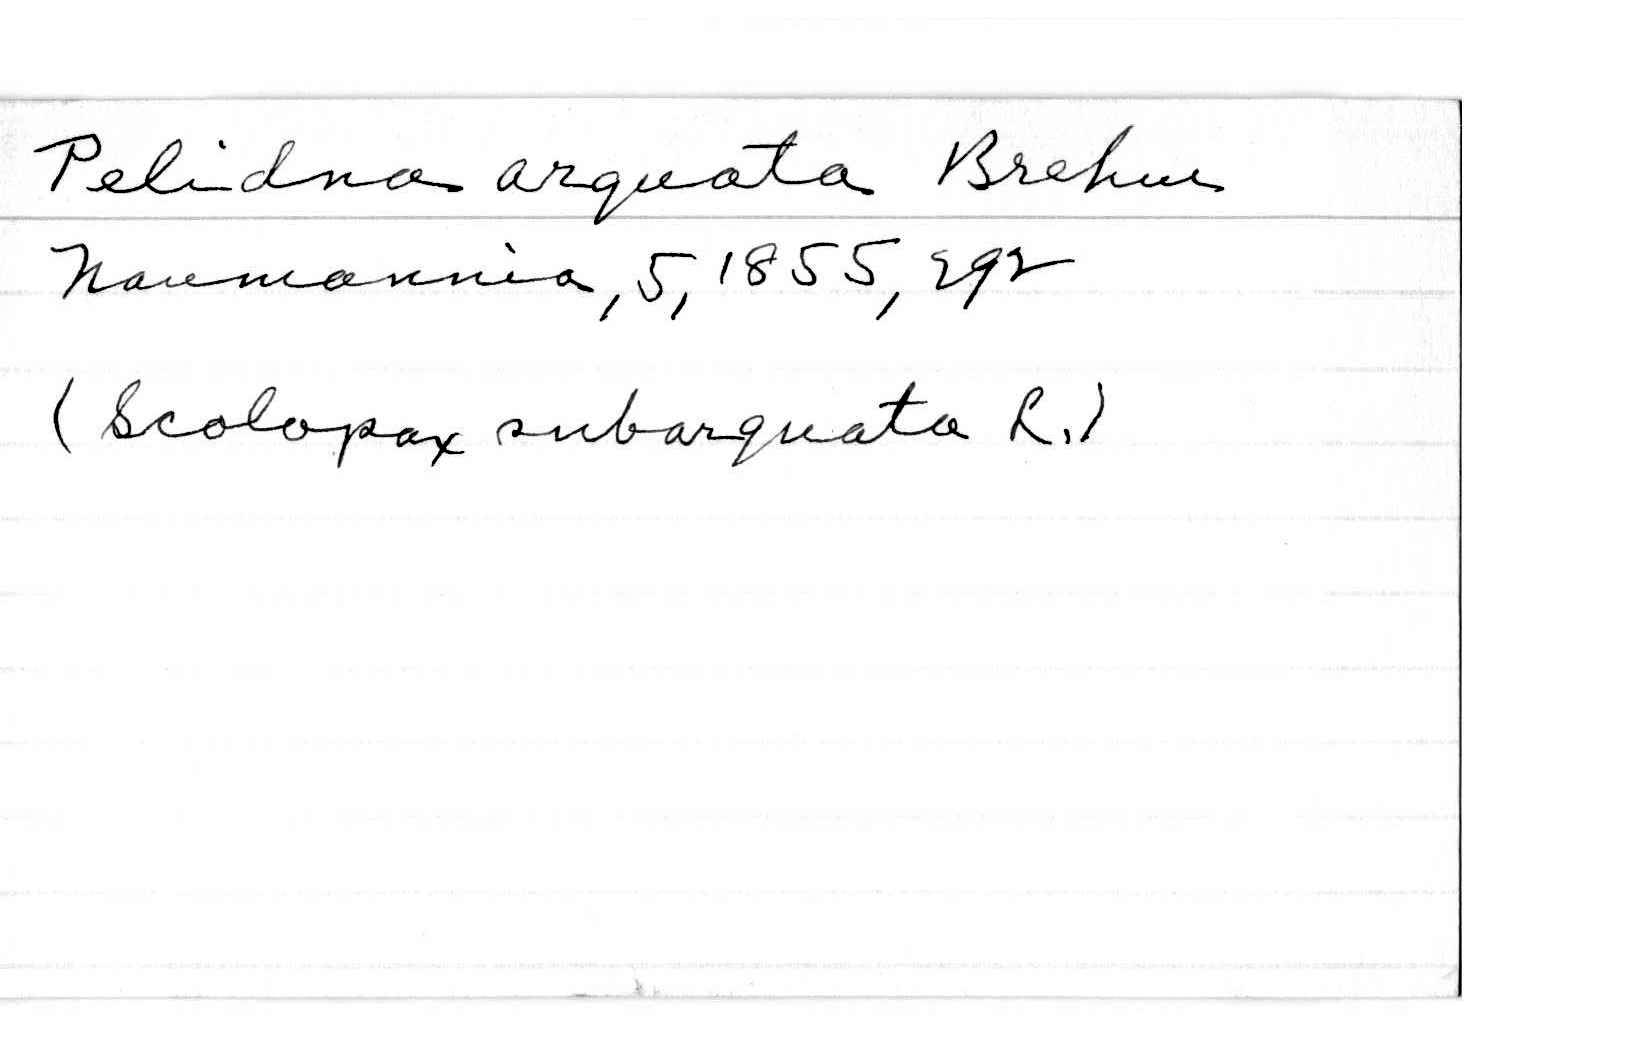 Pelidna arquata Brehm
Naumannia, 5, 1855, 292
(Scolopax subarquata L.)